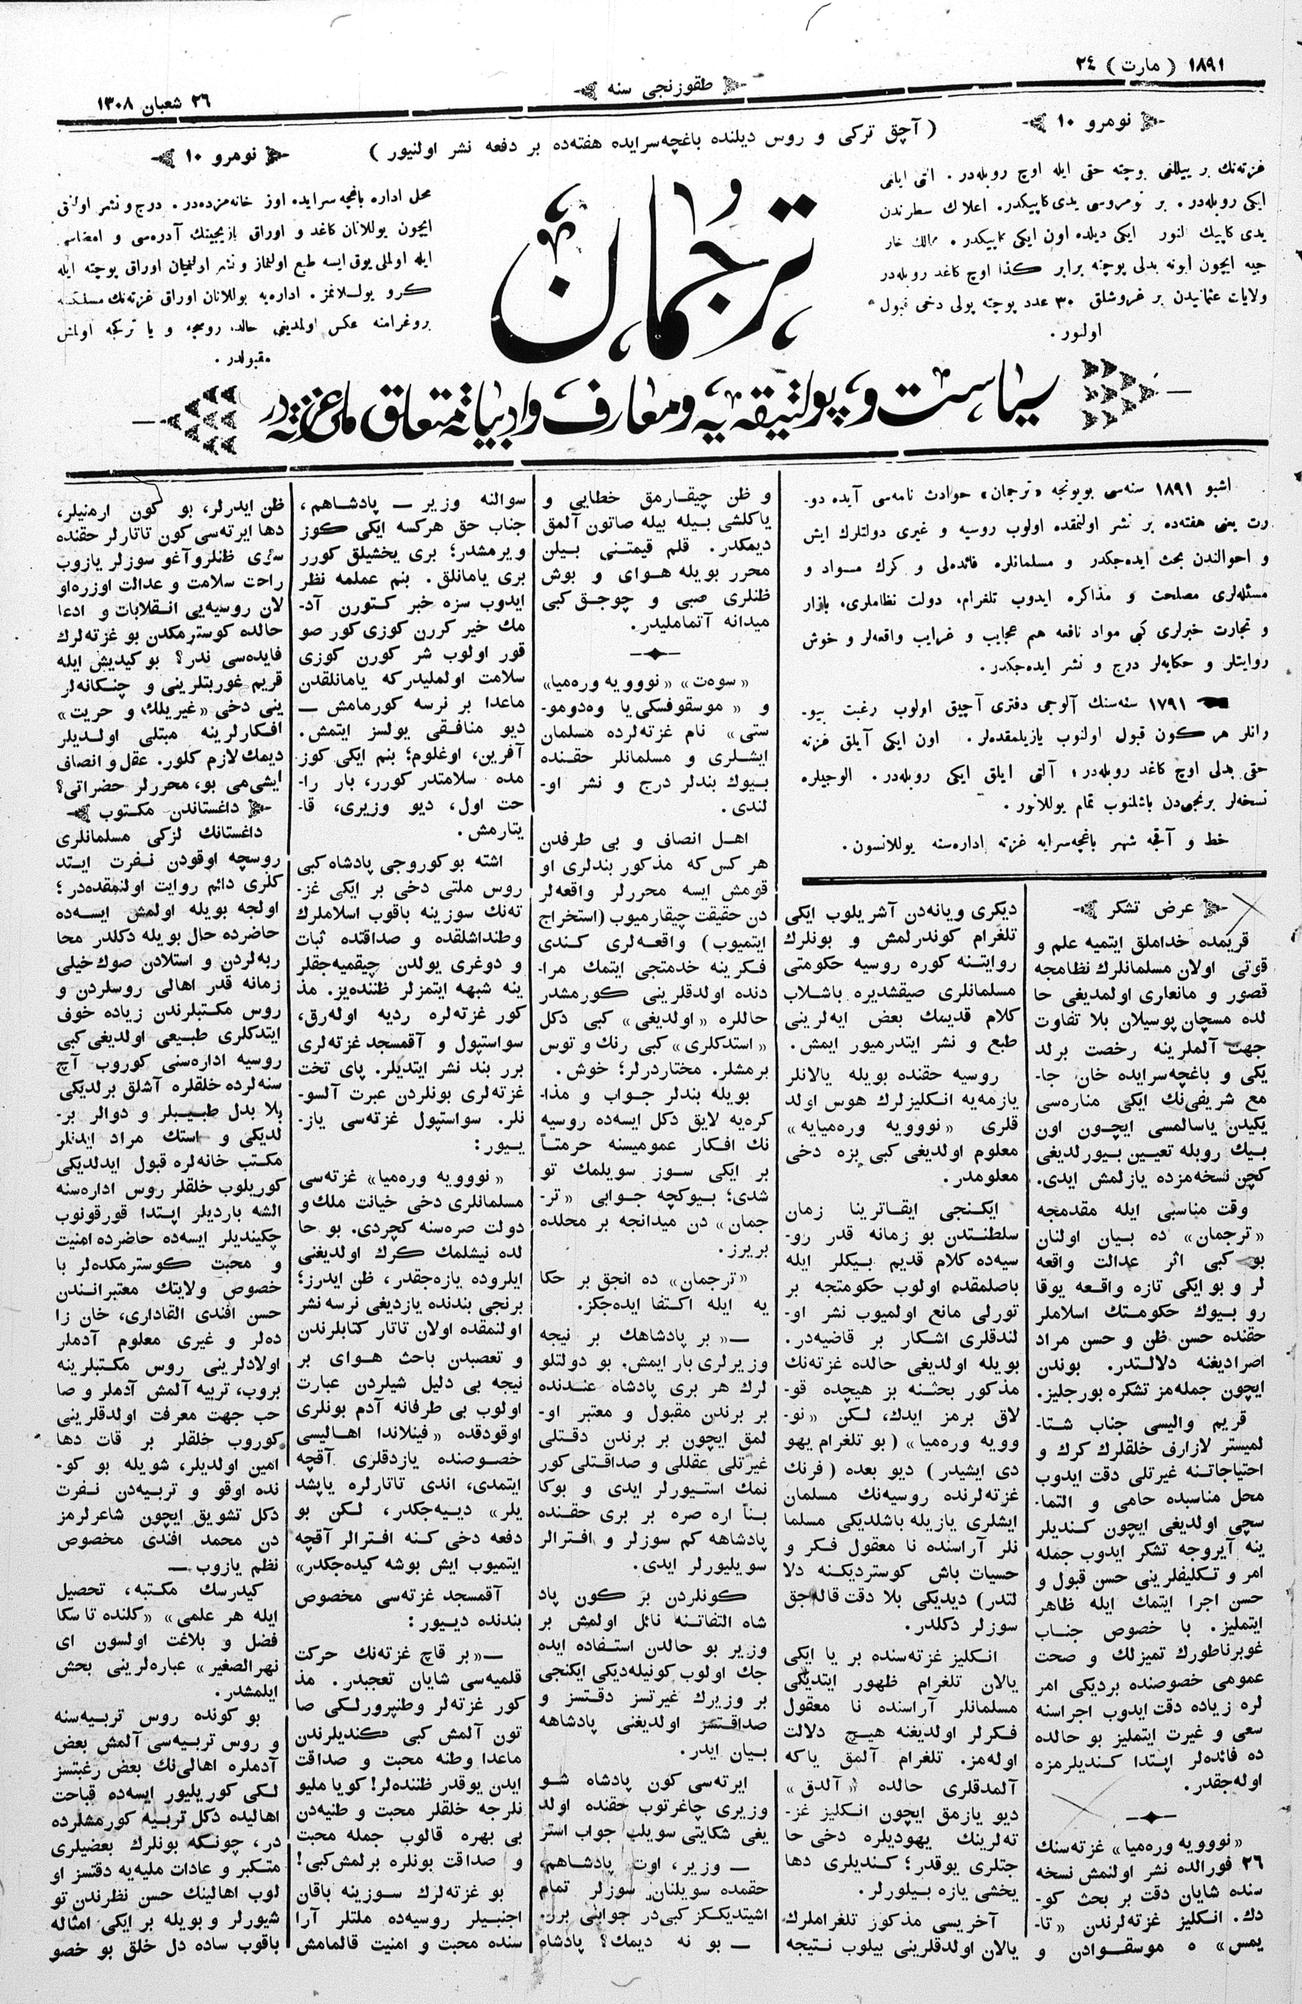 ١٨٩١ ( مارت ) ٢٤
طقوزنجی سنه
٢٦ شعبان ١٣٠٨
نومرو ١٠
( آچق ترکی و روس دیلنده باغچه‌سرایده هفته‌ده بر دفعه نشر اولنیور )
نومرو ١٠
غزته‌نك بر ییللغی پوچته حقی ایله اوچ روبله‌در . التی ایلغی
ایکی روبله‌در . بر نومروسی یدی کاپیکدر . اعلانك سطرندن
یدی کاپیك النور ایکی دیلده اون ایکی کاپیکدر . ممالك خار
جیه ایچون ابونه بدلی پوچته برابر کذا اوچ کاغد روبله‌در
ولایات عثمانیدن بر غروشلق ٣٠ عدد پوچته پولی دخی قبول
اولنور .
ترجمان
محل اداره باغچه سرایده اوز خانه مزده‌در . درج و نشر اولنق
ایچون یوللانان کاغد و اوراق یازیجینك آدره‌سی و امضاسی
ایله اولملی یوق ایسه طبع اولنماز و نشر اولنمیان اوراق پوچته ایله
کرو یوللانمز . اداره‌یه یوللانان اوراق غزته‌نك مسلکنه
پروغرامنه عکس اولمدیغی حالده روسچه و یا ترکجه اولمش
مقبولدر .
سیاست و پولتیقه‌یه و معارف و ادبیاته متعلق ملی غزته‌در
اشبو ١٨٩١ سنه‌سی بویونجه «ترجمان» حوادث نامه‌سی آیده دو-
رت یعنی هفته‌ده بر نشر اولنمقده اولوب روسیه و غیری دولتلرك ایش
و احوالندن بحث ایده‌جکدر و مسلمانلره فائده‌لی و کرك مواد و
مسئله‌لری مصلحت و مذاکره ایدوب تلغرام، دولت نظاملری، بازار
و تجارت خبرلری کبی مواد نافعه هم عجایب و غرایب واقعه‌لر و خوش
روایتلر و حکایه‌لر درج و نشر ایده‌جکدر .
١٧٩١ سنه‌سنك آلوجی دفتری آچیق اولوب رغبت بیو-
رانلر هر کون قبول اولنوب یازیلمقده‌لر . اون ایکی آیلق غزته
حقی بدلی اوچ کاغد روبله‌در ؛ آلتی ایلق ایکی روبله‌در . الوجیلره
نسخه‌لر برنجی‌دن باشلنوب تمام یوللانور .
خط و آقچه شهر باغچه‌سرایه غزته اداره‌سنه یوللانسون .
عرض تشکر
قریمده خداملق ایتمیه علم و
قوتی اولان مسلمانلرك نظامجه
قصور و مانعلری اولمدیغی حا
لده مسچان پوسیلان بلا تفاوت
جهت آلملرینه رخصت برلد
یکی و باغچه‌سرایده خان جا-
مع شریفی‌نك ایکی مناره‌سی
یکیدن یاسالمسی ایچون اون
بیك روبله تعیین بیورلدیغی
کچن نسخه‌مزده یازلمش ایدی.
وقت مناسبی ایله مقدمجه
«ترجمان» ده بیان اولنان
بو کبی اثر عدالت واقعه
لر و بو ایکی تازه واقعه یوقا
رو بیوك حکومتك اسلاملر
حقنده حسن ظن و حسن مراد
اصرادیغنه دلالتدر. بوندن
ایچون جمله‌مز تشکره بورجلیز.
قریم والیسی جناب شتا-
لمیستر لازارف خلقلرك کرك و
احتیاجاتنه غیرتلی دقت ایدوب
محل مناسبده حامی و التما-
سچی اولدیغی ایچون کندیلر
ینه آیروجه تشکر ایدوب جمله
امر و تکلیفلرینی حسن قبول و
حسن اجرا ایتمك ایله ظاهر
ایتملیز. با خصوص جناب
غوبرناطورك تمیزلك و صحت
عمومی خصوصنده بردیکی امر
لره زیاده دقت ایدوب اجراسنه
سعی و غیرت ایتملیز بو حالده
ده فائده‌لر اپتدا کندیلرمزه
اوله‌جقدر.
«نوویه وره‌میا» غزته‌سنك
٢٦ فورالده نشر اولنمش نسخه
سنده شایان دقت بر بحث کو-
دك. انکلیز غزته‌لرندن «تا-
یمس» ه موسقوادن و
دیکری ویانه‌دن آشریلوب ایکی
تلغرام کوندرلمش و بونلرك
روایتنه کوره روسیه حکومتی
مسلمانلری صیقشدیره باشلاب
کلام قدیمك بعض ایه‌لرینی
طبع و نشر ایتدرمیور ایمش.
روسیه حقنده بویله یالانلر
یازمه‌یه انکلیزلرك هوس اولد
قلری «نوویه وره‌میایه»
معلوم اولدیغی کبی بزه دخی
معلومدر.
ایکنجی ایقاترینا زمان
سلطنتندن بو زمانه قدر رو-
سیه‌ده کلام قدیم بیکلر ایله
باصلمقده اولوب حکومتجه بر
تورلی مانع اولمیوب نشر او-
لندقلری اشکار بر قاضیه‌در.
بویله اولدیغی حالده غزته‌نك
مذکور بحثنه بز هیچده قو-
لاق برمز ایدك، لکن «نو-
وویه وره‌میا» (بو تلغرام یهو
دی ایشیدر) دیو بعده (فرنك
غزته‌لرنده روسیه‌نك مسلمان
ایشلری یازیله باشلدیکی مسلما
نلر آراسنده نا معقول فکر و
حسیات باش کوستردیکنه دلا
لتدر) دیدیکی بلا دقت قاله‌جق
سوزلر دکلدر.
انکلیز غزته‌سنده بر یا ایکی
یالان تلغرام ظهور ایتدیکی
مسلمانلر آراسنده نا معقول
فکرلر اولدیغنه هیچ دلالت
اوله‌مز. تلغرام آلمق یاکه
آلمدقلری حالده «آلدق»
دیو یازمق ایچون انکلیز غز-
ته‌لرینك یهودیلره دخی حا
جتلری یوقدر؛ کندیلری دها
یخشی یازه بیلورلر.
آخریسی مذکور تلغراملرك
یالان اولدقلرینی بیلوب نتیجه
و ظن چیقارمق خطایی و
یاکلشی بیله بیله صاتون آلمق
دیمکدر. قلم قیمتنی بیلن
محرر بویله هوای و بوش
ظنلری صبی و چوجق کبی
میدانه آتماملیدر.
«سوه‌ت» «نوویه وره‌میا»
و «موسقوفسکی یا وه‌دومو-
ستی» نام غزته‌لرده مسلمان
ایشلری و مسلمانلر حقنده
بیوك بندلر درج و نشر او-
لندی.
اهل انصاف و بی طرفدن
هر کس که مذکور بندلری او
قومش ایسه محررلر واقعه‌لر
دن حقیقت چیقارمیوب (استخراج
ایتمیوب) واقعه‌لری کندی
فکرینه خدمتجی ایتمك مرا-
دنده اولدقلرینی کورمشدر
حاللره «اولدیغی» کبی دکل
«استدکلری» کبی رنك و توس
برمشلر. مختاردرلر؛ خوش.
بویله بندلر جواب و مذا-
کره‌یه لایق دکل ایسه‌ده روسیه
نك افکار عمومیسنه حرمتاً
بر ایکی سوز سویلمك تو
شدی؛ بیوکچه جوابی «تر-
جمان» دن میدانجه بر محلده
بریرز.
«ترجمان» ده انجق بر حکا
یه ایله اکتفا ایده‌جکز.
—« بر پادشاهك بر نیجه
وزیرلری بار ایمش. بو دولتلو
لرك هر بری پادشاه عندنده
بر برندن مقبول و معتبر او-
لمق ایچون بر برندن دقتلی
غیرتلی عقللی و صداقتلی کور
نمك استیورلر ایدی و بوکا
بناً اره صره بر بری حقنده
پادشاهه کم سوزلر و افترالر
سویلیورلر ایدی.
کونلردن بر کون پاد
شاه التفاتنه نائل اولمش بر
وزیر بو حالدن استفاده ایده
جك اولوب کونیله‌دیکی ایکنجی
بر وزیرك غیرتسز دقتسز و
صداقتسز اولدیغنی پادشاهه
بیان ایدر.
ایرته‌سی کون پادشاه شو
وزیری چاغرتوب حقنده اولد
یغی شکایتی سویلیب جواب استر
— وزیر، اوت پادشاهم،
حقمده سویلنان سوزلر تمام
اشیتدیککز کبی‌در جوابنی برر.
— بو نه دیمك؟ پادشاه
سوالنه وزیر — پادشاهم،
جناب حق هرکسه ایکی کوز
ویرمشدر؛ بری یخشیلق کورر
بری یامانلق. بنم عملمه نظر
ایدوب سزه خبر کتورن آد-
مك خیر کررن کوزی کور صو
قور اولوب شر کورن کوزی
سلامت اولملیدرکه یامانلقدن
ماعدا بر نرسه کورمامش —
دیو منافقی یولسز ایتمش.
آفرین، اوغلوم؛ بنم ایکی کوز
مده سلامتدر کورر، بار را-
حت اول، دیو وزیری، قا-
یتارمش.
اشته بو کوروجی پادشاه کبی
روس ملتی دخی بر ایکی غز-
ته‌نك سوزینه باقوب اسلاملرك
وطنداشلقده و صداقتده ثبات
و دوغری یولدن چیقمیه‌جقلر
ینه شبهه ایتمزلر ظننده‌یز. مذ
کور غزته‌لره ردیه اوله‌رق،
سواستپول و آقمسجد غزته‌لری
برر بند نشر ایتدیلر. پای تخت
غزته‌لری بونلردن عبرت آلسو-
نلر. سواستپول غزته‌سی یاز-
یور:
«نوویه وره‌میا» غزته‌سی
مسلمانلری دخی خیانت ملك و
دولت صره‌سنه کچردی. بو حا
لده نیشلمك کرك اولدیغنی
ایلروده یازه‌جقدر، ظن ایدرز؛
برنجی بندنده یازدیغی نرسه نشر
اولنمقده اولان تاتار کتابلرندن
و تعصبدن باحث هوای بر
نیجه بی دلیل شیلردن عبارت
اولوب بی طرفانه آدم بونلری
اوقودقده «فینلاندا اهالیسی
خصوصنده یازدقلری آقچه
ایتمدی، اندی تاتارلره یاپشد
یلر» دییه‌جکدر، لکن بو
دفعه دخی کنه افترالر آقچه
ایتمیوب ایش بوشه کیده‌جکدر»
آقمسجد غزته‌سی مخصوص
بندنده دییور:
—«بر قاچ غزته‌نك حرکت
قلمیه‌سی شایان تعجبدر. مذ
کور غزته‌لر وطنپرورلکی صا
تون آلمش کبی کندیلرندن
ماعدا وطنه محبت و صداقت
ایدن یوقدر ظننده‌لر! کویا ملیو
نلرجه خلقلر محبت وطنیه‌دن
بی بهره قالوب جمله محبت
و صداقت بونلره برلمش کبی!
بو غزته‌لرك سوزینه باقان
اجنبیلر روسیه‌ده ملتلر آرا
سنده محبت و امنیت قالمامش
ظن ایدرلر، بو کون ارمنیلر،
دها ایرته‌سی کون تاتارلر حقنده
سوزی ظنلر و آغو سوزلر یازوب
راحت سلامت و عدالت اوزره او
لان روسیه‌یی انقلابات و ادعا
حالده کوسترمکدن بو غزته‌لرك
فایده‌سی ندر؟ بو کیدیش ایله
قریم غوربتلرینی و چنکانه‌لر
ینی دخی «غیریلك و حریت»
افکارلرینه مبتلی اولدیلر
دیمك لازم کلور. عقل و انصاف
ایشی‌می بو، محررلر حضراتی؟
داغستاندن مکتوب
داغستانك لزکی مسلمانلری
روسچه اوقودن نفرت ایتد
کلری دائم روایت اولنمقده‌در ؛
اولجه بویله اولمش ایسه‌ده
حاضرده حال بویله دکلدر محا
ربه‌لردن و استلادن صوك خیلی
زمانه قدر اهالی روسلردن و
روس مکتبلرندن زیاده خوف
ایتدکلری طبیعی اولدیغی کبی
روسیه اداره‌سنی کوروب آچ
سنه‌لرده خلقلره آشلق برلدیکی
بلا بدل طبیبلر و دوالر بر-
لدیکی و استك مراد ایدنلر
مکتب خانه‌لره قبول ایدلدیکی
کوریلوب خلقلر روس اداره‌سنه
الشه باردیلر اپتدا قورقونوب
چکیندیلر ایسه‌ده حاضرده امنیت
و محبت کوسترمکده‌لر با
خصوص ولایتك معتبرانندن
حسن افندی القاداری، خان زا
ده‌لر و غیری معلوم آدملر
اولادلرینی روس مکتبلرینه
بروب، تربیه آلمش آدملر و صا
حب جهت معرفت اولدقلرینی
کوروب خلقلر بر قات دها
امین اولدیلر، شویله بو کو-
نده اوقو و تربیه‌دن نفرت
دکل تشویق ایچون شاعرلرمز
دن محمد افندی مخصوص
نظم یازوب —
کیدرسك مکتبه، تحصیل
ایله هر علمی» «کلنده تا سکا
فضل و بلاغت اولسون ای
نهرالصغیر» عباره‌لرینی بحش
ایلمشدر.
بو کونده روس تربیه‌سنه
و روس تربیه‌سی آلمش بعض
آدملره اهالی‌نك بعض رغبتسز
لکی کوریلیور ایسه‌ده قباحت
اهالیده دکل تربیه کورمشلرده
در، چونکه بونلرك بعضیلری
متکبر و عادات ملیه‌یه دقتسز او
لوب اهالینك حسن نظرندن تو
شیورلر و بویله بر ایکی امثاله
باقوب ساده دل خلق بو خصو